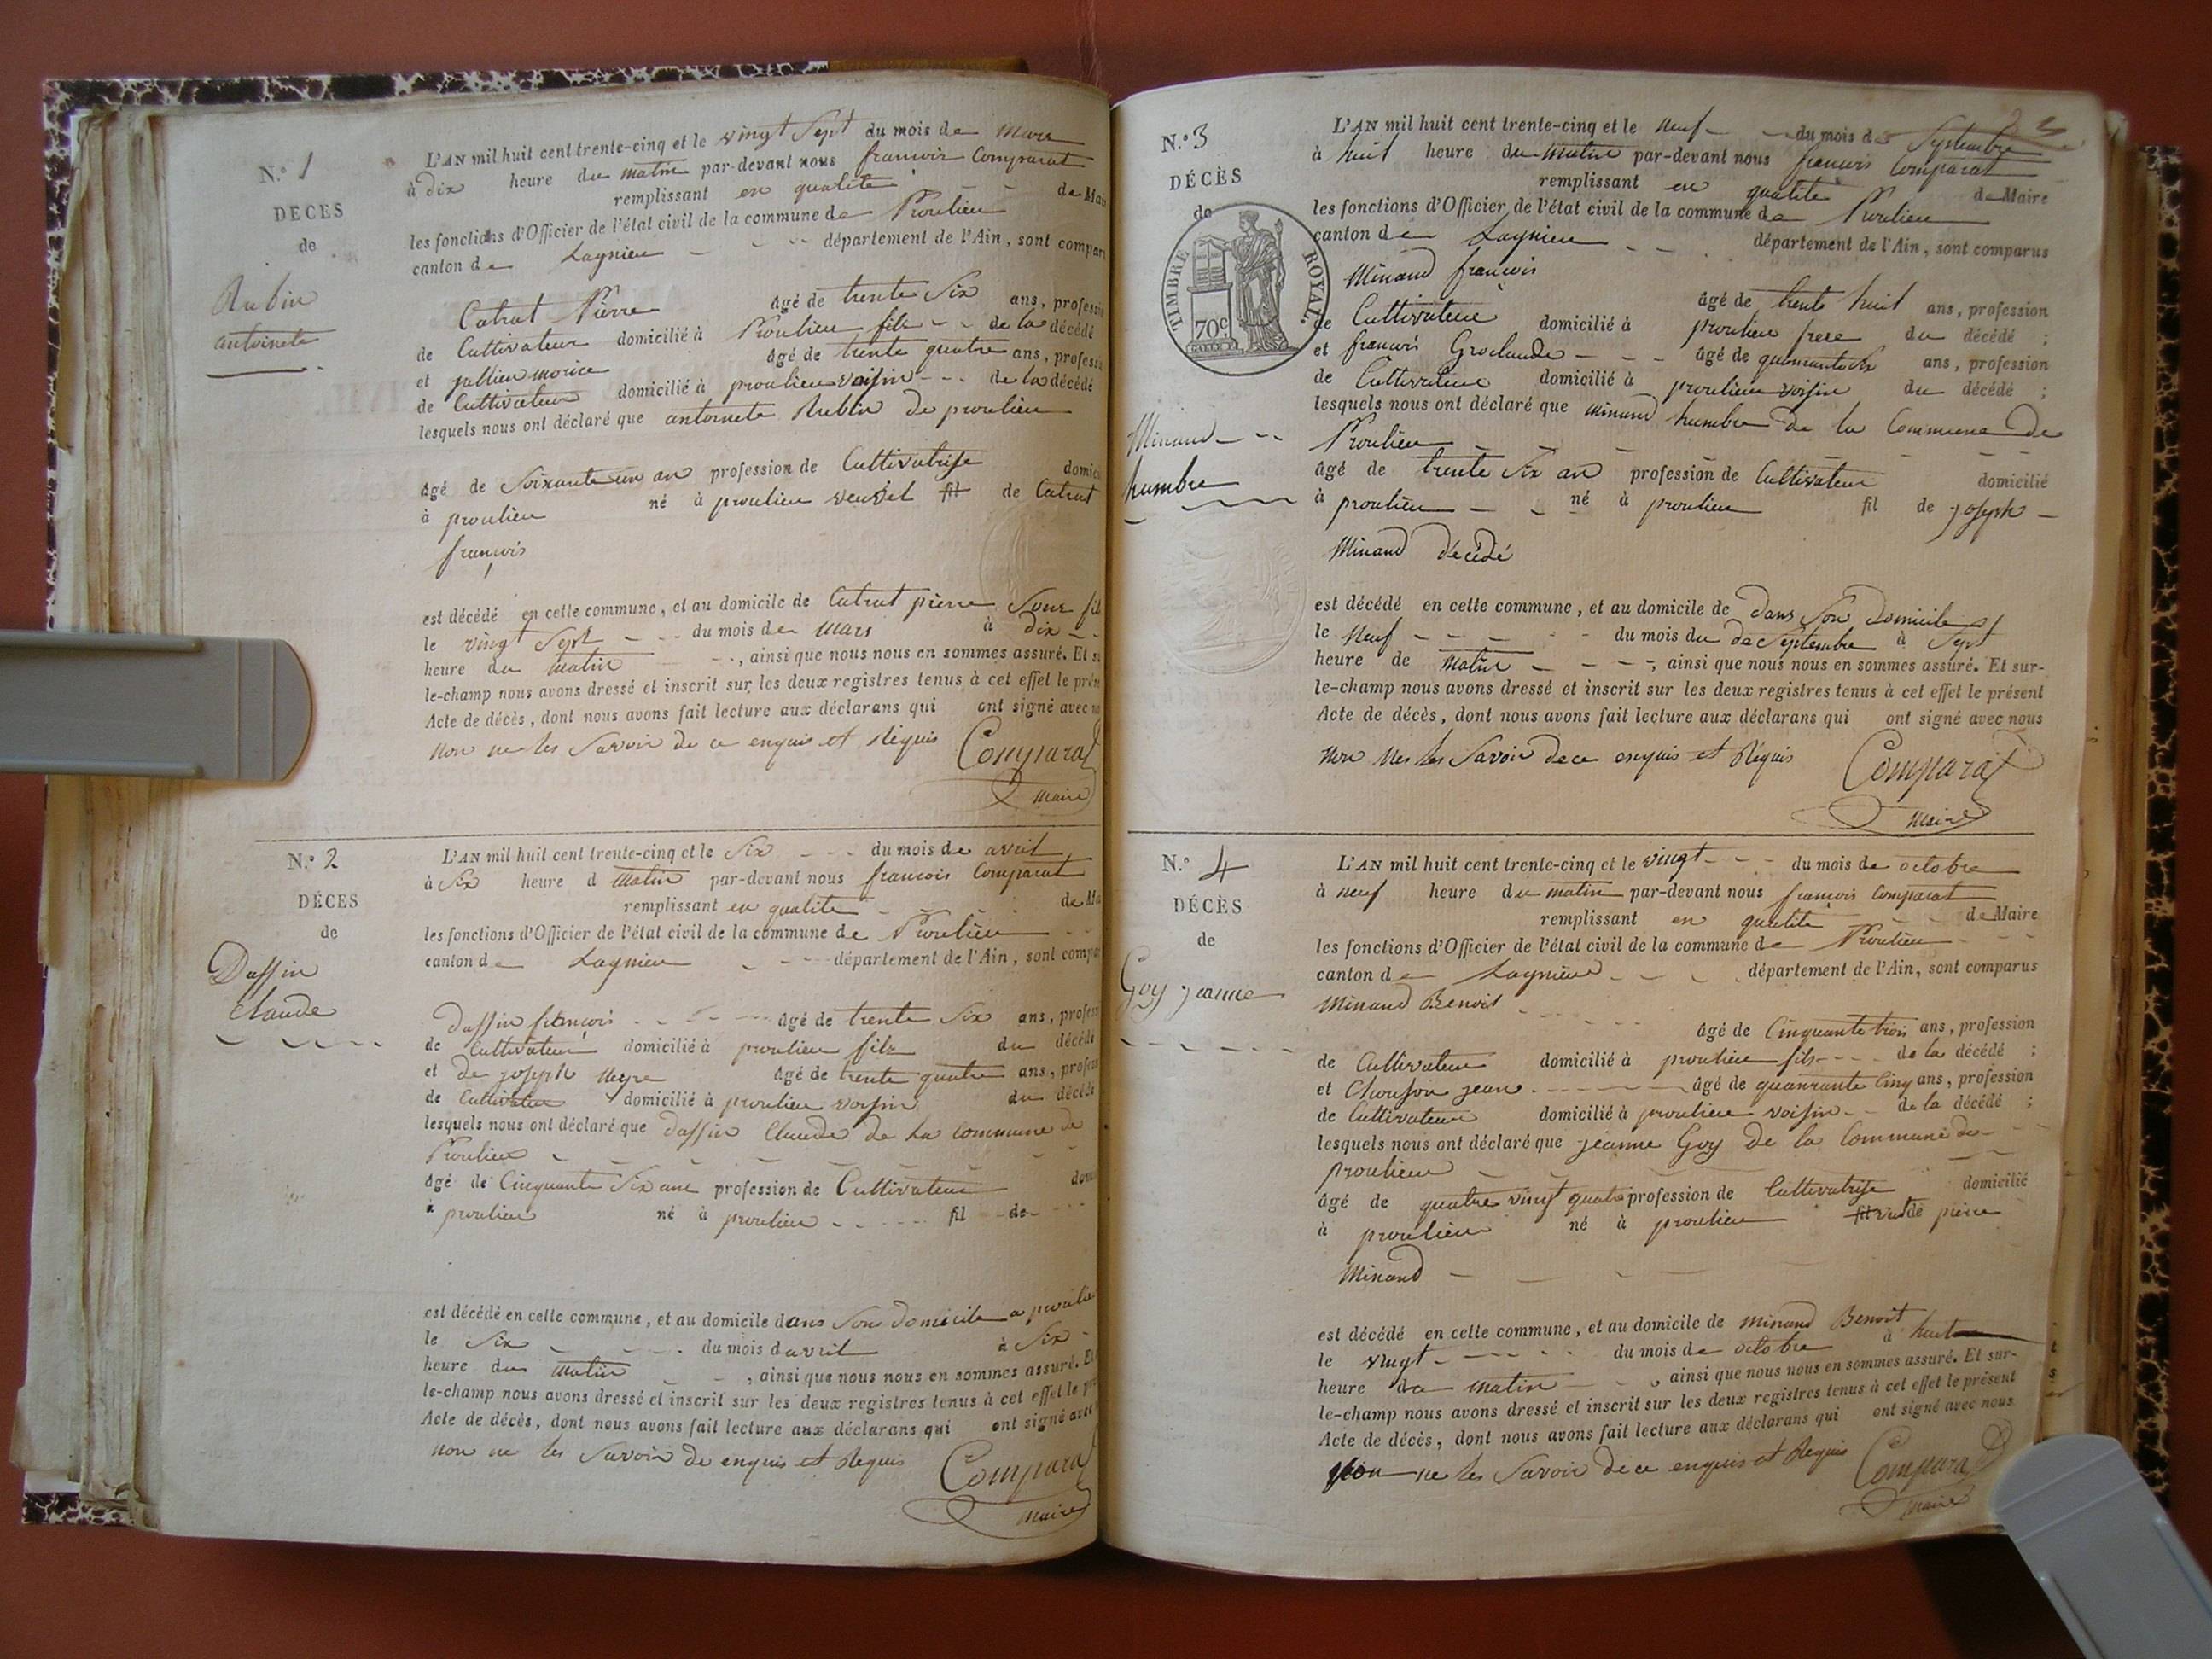 N.° 1
DÉCES
de
Rubin
antoinete
L'AN mil huit cent trente-cinq et le vingt Sept du mois de Mars
à dix heure du matin par-devant nous francois Comparat
remplissant en qualité de Mai
les fonctions d'Officier de l'état civil de la commune de Proulieu
canton de Lagnieu département de l'Ain, sont compar
Catrat Pierre âgé de trente Six ans, professi
de Cultivateur domicilié à Proulieu fils de la décédé
et jullien morice âgé de trente quatre ans, professi
de Cultivateur domicilié à proulieu voisin de la décédé
lesquels nous ont déclaré que antoinete Rubin de proulieu
âgé de Soixante un an profession de Cultivatrise domici
à proulieu né à proulieu veuve et fil de Catrat
françois
est décédé en cette commune, et au domicile de Catrat pierre Son fil
le vingt Sept du mois de Mars à dix
heure du matin, ainsi que nous nous en sommes assuré. Et su
le-champ nous avons dressé et inscrit sur les deux registres tenus à cet effet le prén
Acte de décès, dont nous avons fait lecture aux déclarans qui ont signé avec no
non ne les Savoir de ce enquis et Réquis Comparat
maire
N.° 2
DÉCES
de
Daffin
Claude
L'AN mil huit cent trente-cinq et le Six du mois de avril
à Six heure d matin par-devant nous francois Comparat
remplissant en qualité de Ma
les fonctions d'Officier de l'état civil de la commune de Proulieu
canton de Lagnieu département de l'Ain, sont compa
Daffin françois âgé de trente Six ans, profess
de Cultivateur domicilié à proulieu fils du décédé
et de joseph Neyre âgé de trente quatre ans, profess
de Cultivateur domicilié à proulieu voisin du décédé
lesquels nous ont déclaré que daffin Claude de la Commune de
Proulieu
âgé de Cinquante Six ane profession de Cultivateur domi
à proulieu né à proulieu fil de
est décédé en cette commune, et au domicile dans Son Domicile a proulie
le Six du mois d avril à Six
heure du matin, ainsi que nous nous en sommes assuré. Et
le-champ nous avons dressé et inscrit sur les deux registres tenus à cet effet le pr
Acte de décès, dont nous avons fait lecture aux déclarans qui ont signé avec
non ne les Savoir de enquis et Requis Comparat
maire
N.° 3
DÉCÈS
de
TIMBRE ROYAL.
70c
Minand
humbre
L'AN mil huit cent trente-cinq et le Neuf du mois de Septembre
à huit heure du matin par-devant nous francois Comparat
remplissant en qualité de Maire
les fonctions d'Officier de l'état civil de la commune de Proulieu
canton de Lagnieu département de l'Ain, sont comparus
Minand francois
âgé de trente huit ans, profession
de Cultivateur domicilié à proulieu frere du décédé ;
et francois Groclaude âgé de ans, profession
de Cultivateur domicilié à proulieu voisin du décédé ;
lesquels nous ont déclaré que minand humbre de la Commune de
Proulieu
âgé de trente Six an profession de Cultivateur domicilié
à proulieu né à proulieu fil de joseph
Minand décédé
est décédé en cette commune, et au domicile de dans Son Domicile
le Neuf du mois du de Septembre à Sept
heure de Matin, ainsi que nous nous en sommes assuré. Et sur-
le-champ nous avons dressé et inscrit sur les deux registres tenus à cet effet le présent
Acte de décès, dont nous avons fait lecture aux déclarans qui ont signé avec nous
Non Nes les Savoir de ce enquis et Réquis Comparat
Maire
N.° 4
DÉCÈS
de
Goy jeanne
L'AN mil huit cent trente-cinq et le vingt du mois de octobre
à neuf heure du matin par-devant nous françois Comparat
remplissant en qualité de Maire
les fonctions d'Officier de l'état civil de la commune de Proulieu
canton de Lagnieu département de l'Ain, sont comparus
Minand Benoit
âgé de Cinquante trois ans, profession
de Cultivateur domicilié à proulieu fils de la décédé ;
et Chouson jean âgé de quanrante Cinq ans, profession
de Cultivateur domicilié à proulieu voisin de la décédé ;
lesquels nous ont déclaré que jeanne Goy de la Commune de
proulieu
âgé de quatre vingt quatre profession de Cultivatrise domicilié
à proulieu né à proulieu fil de pierre
Minand
est décédé en cette commune, et au domicile de Minand Benoit
le vingt du mois de octobre à huit
heure de matin, ainsi que nous nous en sommes assuré. Et sur-
le-champ nous avons dressé et inscrit sur les deux registres tenus à cet effet le présent
Acte de décès, dont nous avons fait lecture aux déclarans qui ont signé avec nous
Non ne les Savoir de ce enquis et Requis Comparat
maire